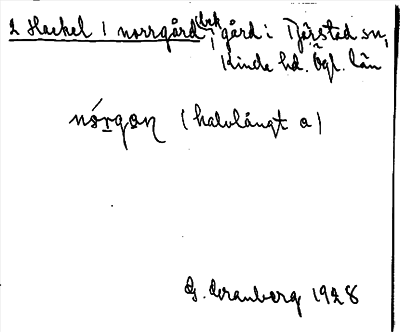 2 Heckel 1 norrgård bek gård i Tjärstad sn,
Kinde hd. Ögl. län
nórgan (halvlångt a)
G. Granberg 1928